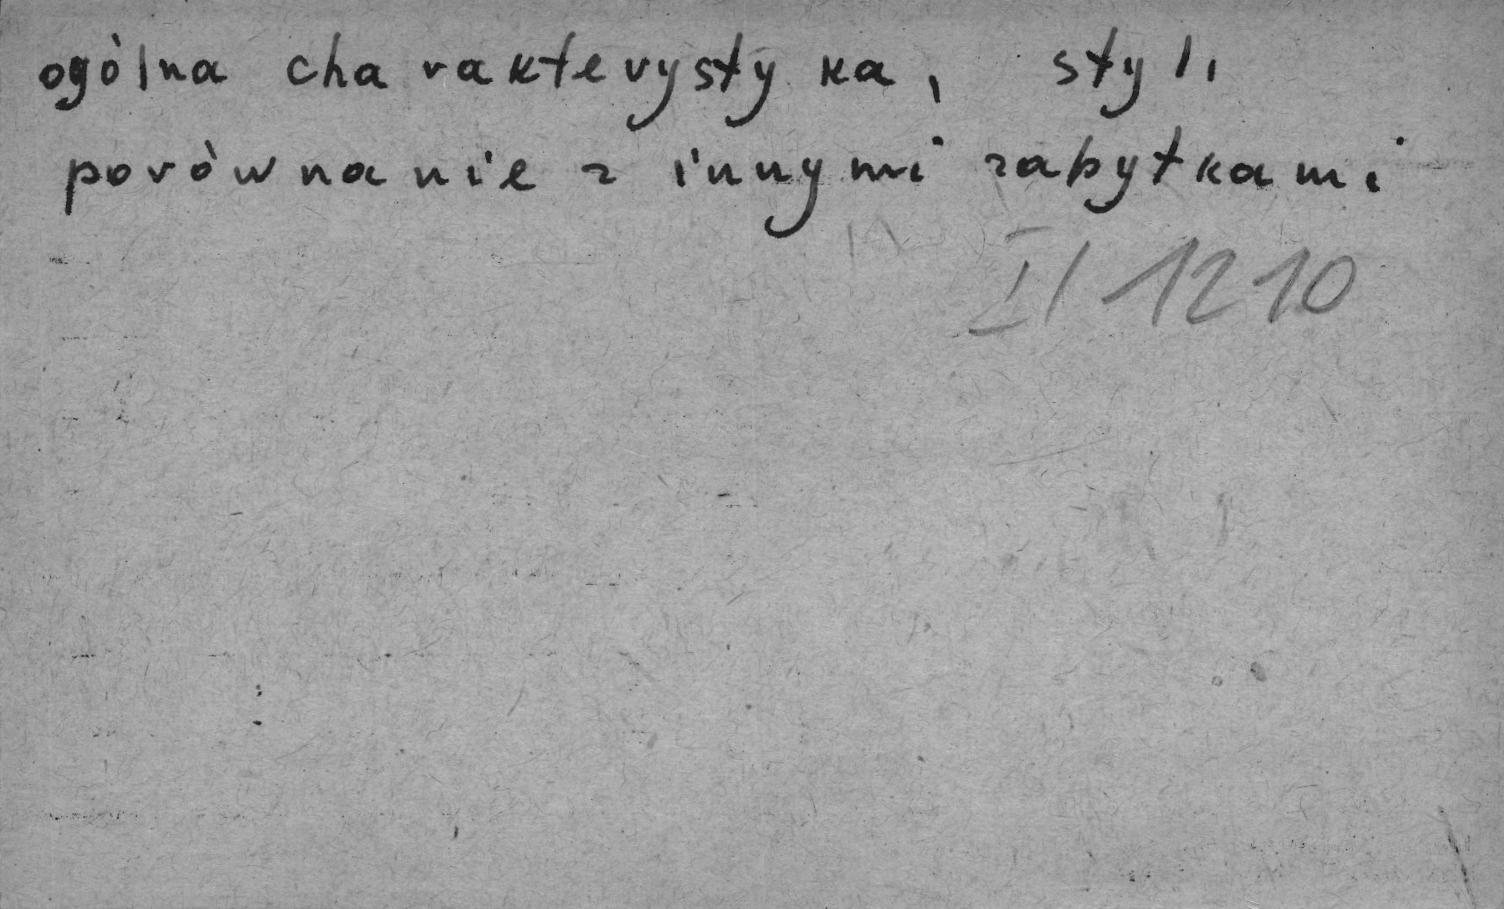 ogólna charakterystyka, styl,
porównanie z innymi zabytkami
II 1210